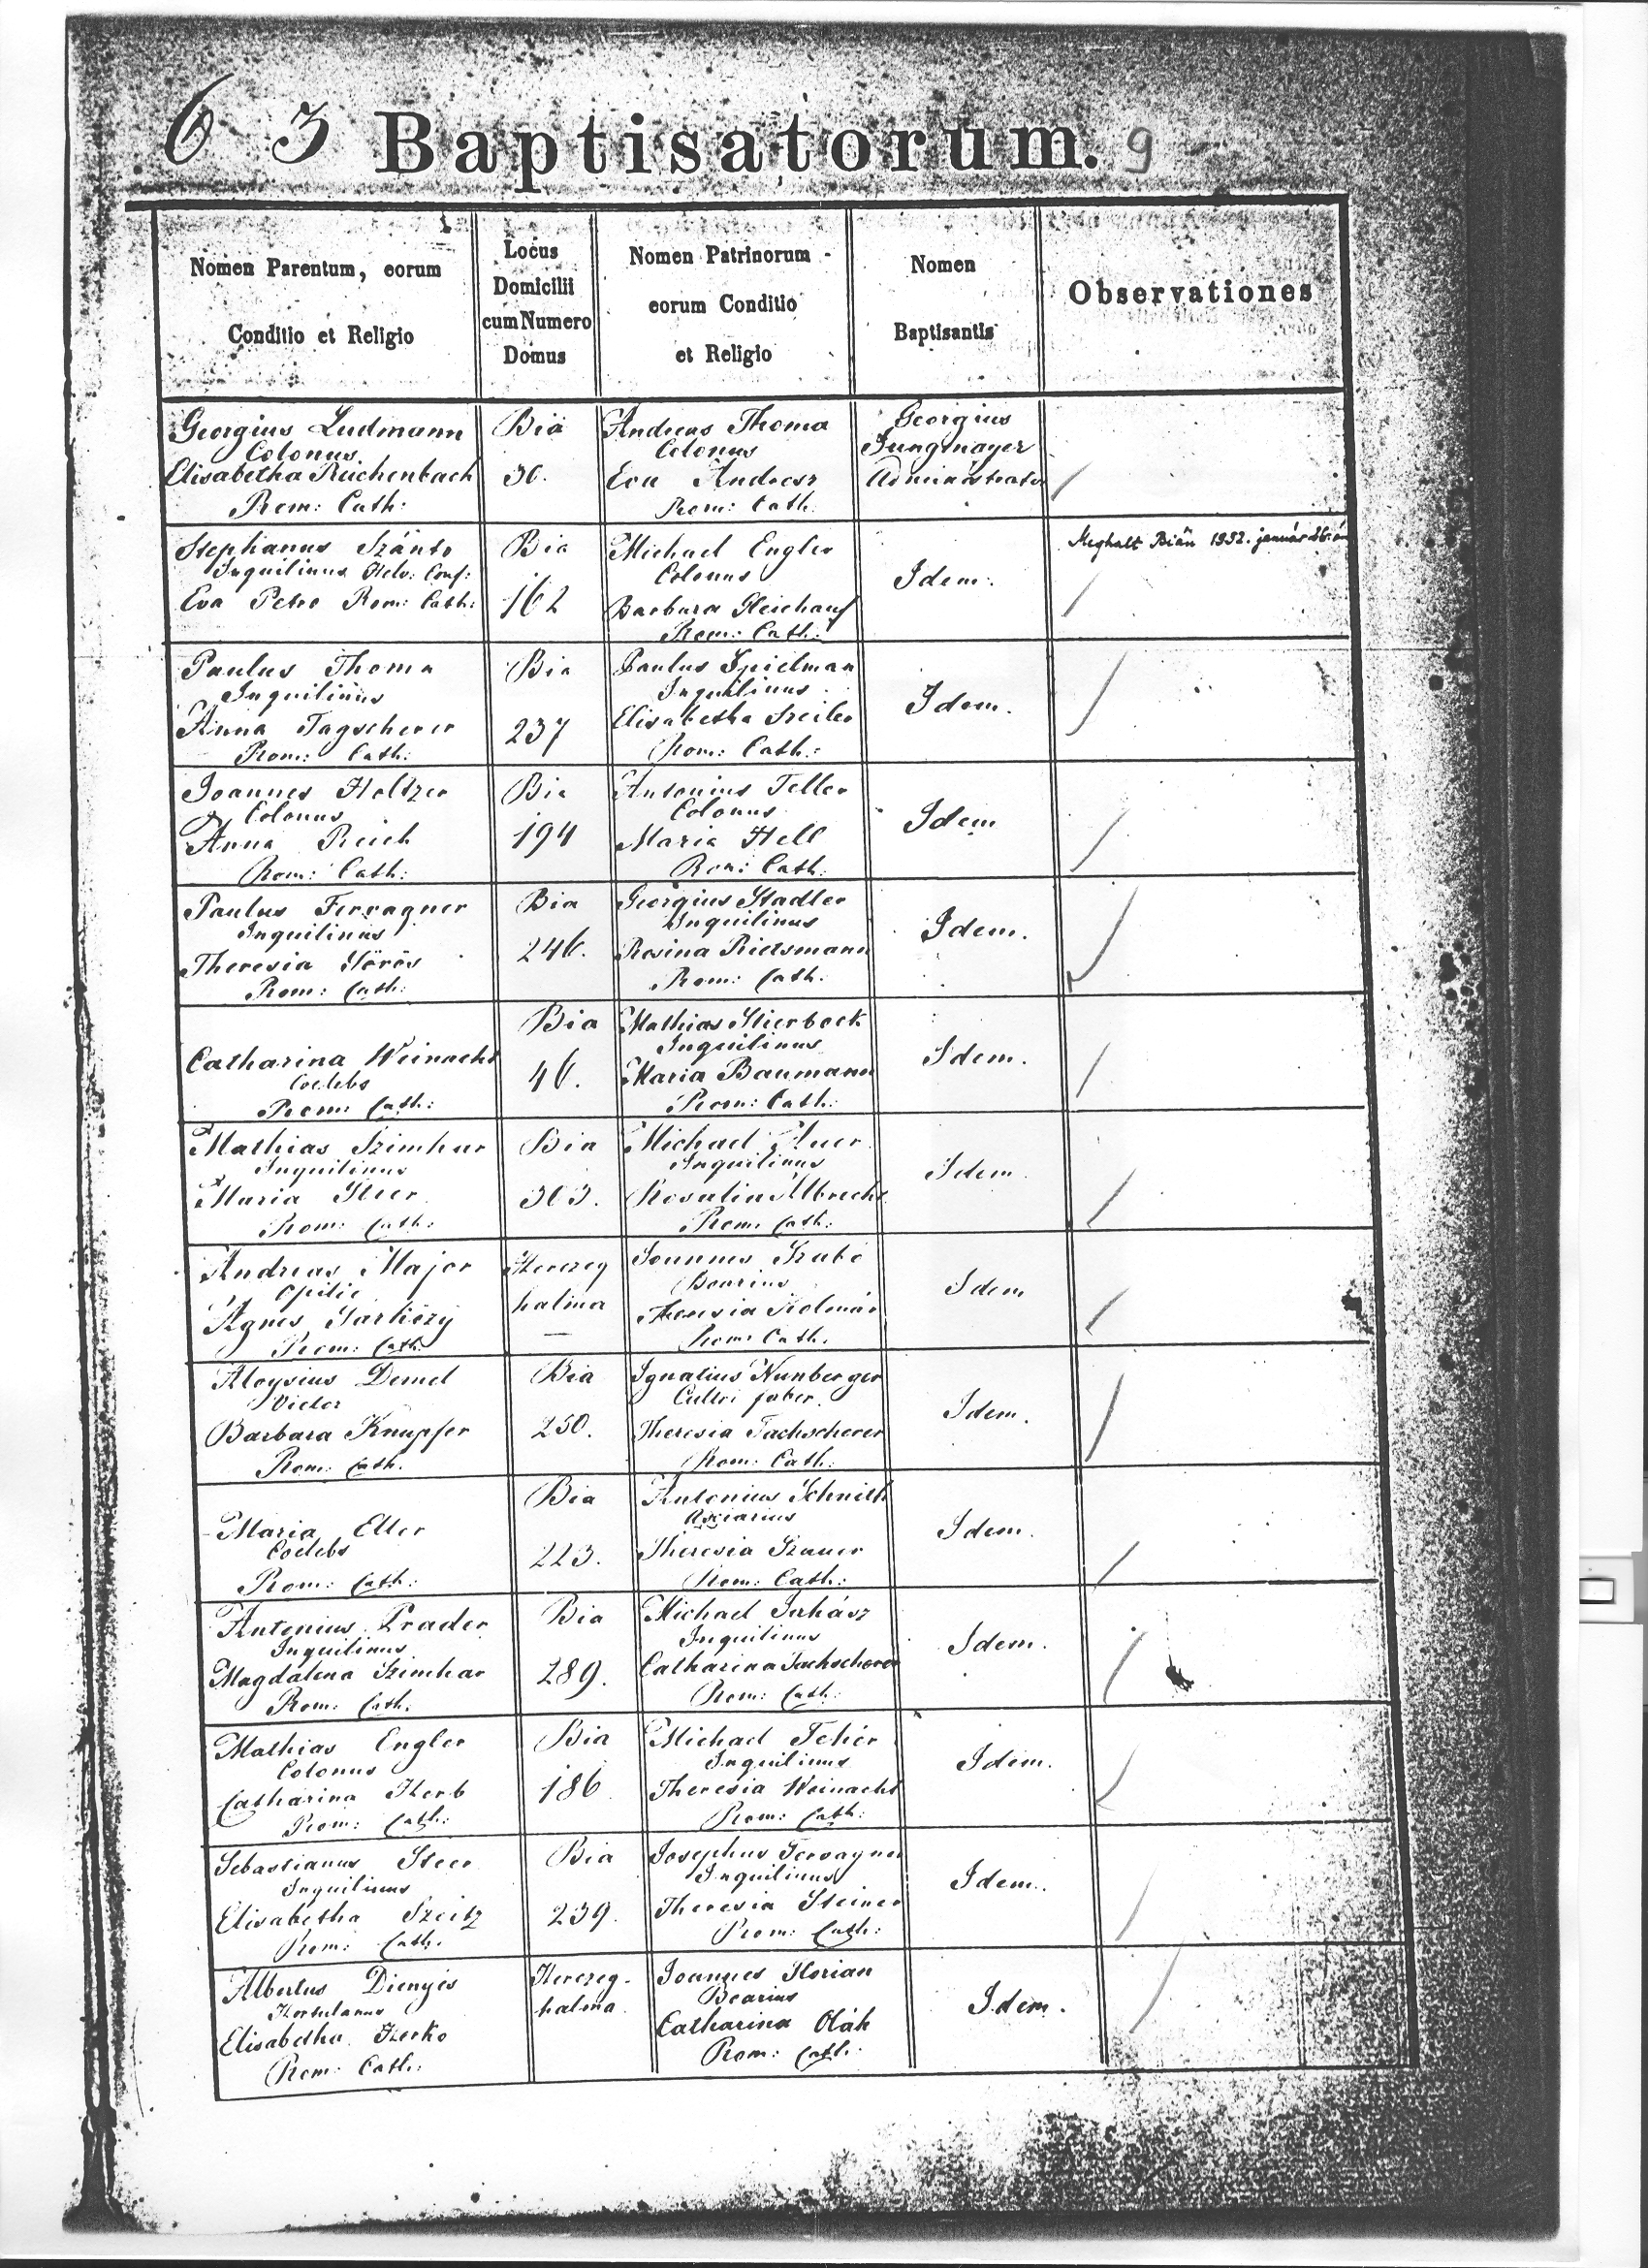 6 3 Baptisatorum. 9
Nomen Parentum, eorum
Conditio et Religio
Locus
Domicilii
cum Numero
Domus
Nomen Patrinorum
eorum Conditio
et Religio
Nomen
Baptisantis
Observationes
Georgius Ludmann
Colonus
Elisabetha Reichenbach
Rom: Cath:
Bia
30.
Andreas Thoma
Colonus
Eva Andresz
Rom: Cath.
Georgius
Jungmayer
Administrator
Stephanus Szánto
Inquilinus Helv: Conf:
Eva Petro Rom: Cath:
Bia
162
Michael Engler
Colonus
Barbara
Rom: Cath:
Idem.
Meghalt Bián 1932. január 26.án
Paulus Thoma
Inquilinus
Anna Tagscherer
Rom: Cath:
Bia
237
Paulus Spielman
Inquilinus
Elisabetha
Rom: Cath:
Idem.
Joannes Holtzer
Colonus
Anna Reich
Rom: Cath:
Bia
194
Antonius Teller
Colonus
Maria Hell
Rom: Cath.
Idem
Paulus Fervagner
Inquilinus
Theresia Vörös
Rom: Cath:
Bia
246.
Georgius Stadler
Inquilinus
Rosina Rietsmann
Rom: Cath.
Idem.
Catharina Weinacht
Coelebs
Rom: Cath:
Bia
46.
Mathias Stierbock
Inquilinus
Maria Baumann
Rom: Cath:
Idem.
Mathias Szimhar
Inquilinus
Maria Steer
Rom: Cath:
Bia
303.
Michael Auer
Inquilinus
Rosalia Albrecht
Rom: Cath:
Idem
Andreas Major
Opilio
Agnes Sarközy
Rom: Cath:
Herczeg
halma
Joannes Szabó
Boarius
Theresia Molnár
Rom: Cath.
Idem
Aloysius Demel
Vietor
Barbara Knupfer
Rom: Cath.
Bia
250.
Ignatius Nunberger
Cultri faber.
Theresia Tachscherer
Rom: Cath:
Idem.
Maria Eller
Coelebs
Rom: Cath:
Bia
223.
Antonius Schnith
Theresia
Rom: Cath:
Idem.
Antonius Prader
Inquilinus
Magdalena Szimhar
Rom: Cath.
Bia
289.
Michael Juhász
Inquilinus
Catharina Tachscherer
Rom: Cath:
Idem.
Mathias Engler
Colonus
Catharina Herb
Rom: Cath:
Bia
186
Michael Fehér
Inquilinus
Theresia Weinacht
Rom: Cath:
Idem.
Sebastianus Steer
Inquilinus
Elisabetha Szeitz
Rom: Cath.
Bia
239.
Josephus Fervagner
Inquilinus
Theresia Steiner
Rom: Cath:
Idem.
Albertus Dienyés
Hortulanus
Elisabetha
Rom: Cath:
Herczeg-
halma.
Joannes Florian
Boarius
Catharina Oláh
Rom: Cath:
Idem.